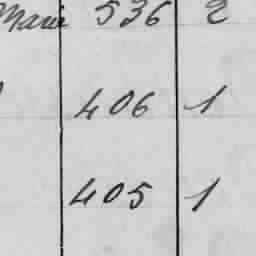 Marie 536 2
406 1
405 1